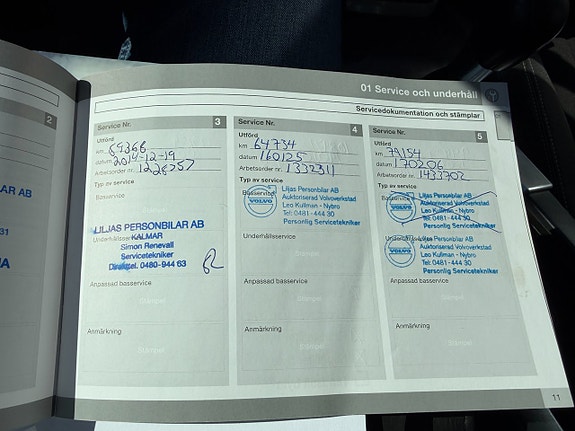 01 Service och underhåll
Servicedokumentation och stämplar
2
Service Nr. 3
Utförd
km
datum 2014-12-19
Arbetsorder nr.
Typ av service
Basservice
LILJAS PERSONBILAR AB
KALMAR
Underhållsservice
Simon Renevall
Servicetekniker
Direkttel. 0480-944 63
Anpassad basservice
Stämpel
Anmärkning
Stämpel
Service Nr. 4
Utförd
km 64734
datum 160125
Arbetsorder nr. 1332311
Typ av service
Basservice
VOLVO
Liljas Personbilar AB
Auktoriserad Volvoverkstad
Leo Kullman - Nybro
Tel: 0481-444 30
Personlig Servicetekniker
Underhållsservice
Anpassad basservice
Stämpel
Anmärkning
Stämpel
Service Nr. 5
Utförd
km 79154
datum 170206
Arbetsorder nr. 1433702
Typ av service
Basservice
VOLVO
Liljas Personbilar AB
Auktoriserad Volvoverkstad
Leo Kullman - Nybro
Tel: 0481-444 30
Personlig Servicetekniker
Underhållsservice
VOLVO
Liljas Personbilar AB
Auktoriserad Volvoverkstad
Leo Kullman - Nybro
Tel: 0481-444 30
Personlig Servicetekniker
Anpassad basservice
Stämpel
Anmärkning
Stämpel
11